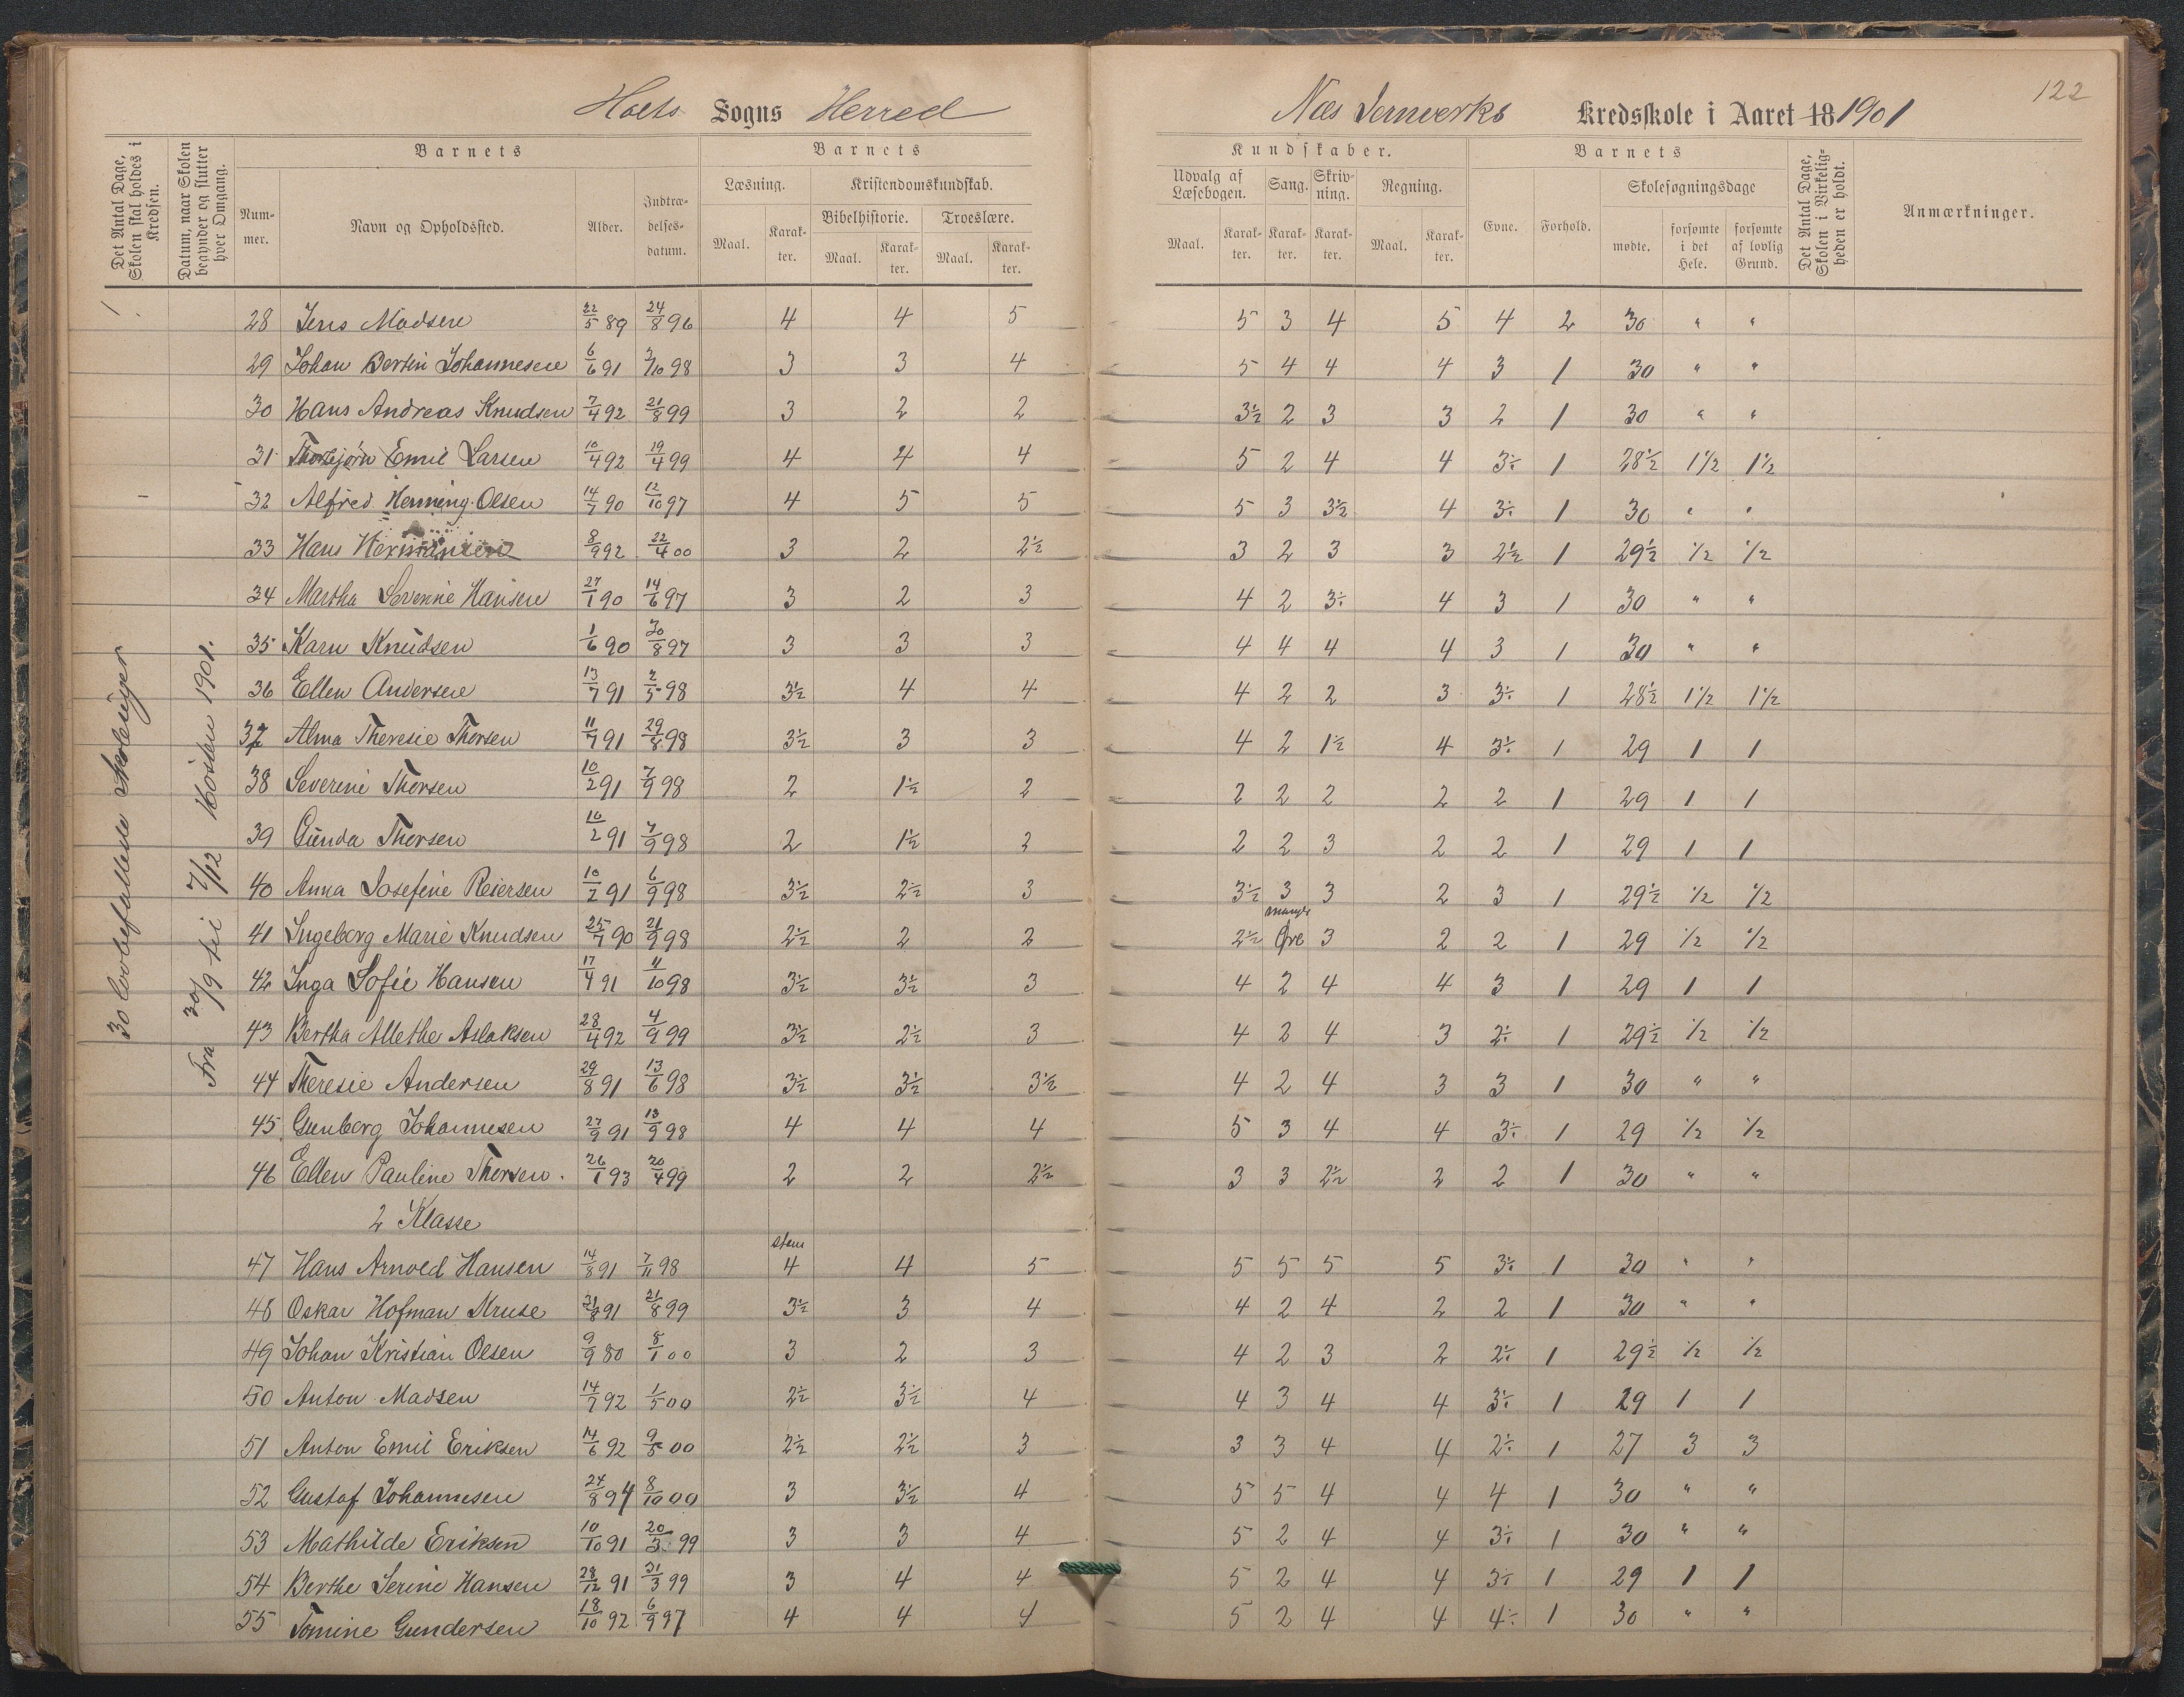 Holts Sogns Herred
Næs Jernverks Kredsskole i Aaret 18 1901
122
Det Antal Dage, Skolen skal holdes i Kredsen.
Datum, naar Skolen begynder og slutter hver Omgang.
Barnets
Barnets
Kundskaber.
Barnets
Det Antal Dage, Skolen i Virkeligheden er holdt.
Anmærkninger.
Nummer.
Navn og Opholdssted.
Alder.
Indtrædelsesdatum.
Læsning.
Kristendomskundskab.
Bibelhistorie.
Troeslære.
Maal. Karakter. Maal. Karakter. Maal. Karakter.
Udvalg af Læsebogen.
Sang.
Skrivning.
Regning.
Maal. Karakter. Karakter. Karakter. Maal. Karakter.
Evne.
Forhold.
Skolesøgningsdage
mødte.
forsømte i det Hele.
forsømte af lovlig Grund.
30 lovbefallede Skoleuger
Fra 30/9 til 7/12 Høsten 1901.
28 Jens Madsen 22/5 89 24/8 96 4 4 5 5 3 4 5 4 2 30 " "
29 Johan Bertin Johannesen 6/6 91 3/10 98 3 3 4 5 4 4 4 3 1 30 " "
30 Hans Andreas Knudsen 7/4 92 21/8 99 3 2 2 3½ 2 3 3 2 1 30 " "
31 Thorbjørn Emil Larsen 10/4 92 19/4 99 4 4 4 5 2 4 4 3÷ 1 28½ 1½ 1½
32 Alfred Henning Olsen 14/7 90 12/10 97 4 5 5 5 3 3½ 4 3÷ 1 30 " "
33 Hans Hermansen 8/9 92 22/4 00 3 2 2½ 3 2 3 3 2½ 1 29½ ½ ½
34 Martha Severine Hansen 27/1 90 14/6 97 3 2 3 4 2 3÷ 4 3 1 30 " "
35 Karn Knudsen 1/6 90 30/8 97 3 3 3 4 4 4 4 3 1 30 " "
36 Ellen Andersen 13/7 91 2/5 98 3½ 4 4 4 2 2 3 3÷ 1 28½ 1½ 1½
37 Alma Theresie Thorsen 11/7 91 29/8 98 3½ 3 3 4 2 1½ 4 3÷ 1 29 1 1
38 Severine Thorsen 10/2 91 7/9 98 2 1½ 2 2 2 2 2 2 1 29 1 1
39 Gunda Thorsen 10/2 91 7/9 98 2 1½ 2 2 2 3 2 2 1 29 1 1
40 Anna Josefine Reiersen 10/2 91 6/9 98 3½ 2½ 3 3½ 3 3 2 3 1 29½ ½ ½
41 Ingeborg Marie Knudsen 25/7 90 21/9 98 2½ 2 2 2½ mangl. Øre 3 2 2 1 29 ½ ½
42 Inga Sofie Hansen 17/4 91 11/10 98 3½ 3½ 3 4 2 4 4 3 1 29 1 1
43 Bertha Allethe Aslaksen 28/4 92 4/9 99 3½ 2½ 3 4 2 4 3 2÷ 1 29½ ½ ½
44 Theresie Andersen 29/8 91 13/6 98 3½ 3½ 3½ 4 2 4 3 3 1 30 " "
45 Gunborg Johannesen 27/9 91 13/9 98 4 4 4 5 3 4 4 3÷ 1 29 ½ ½
46 Ellen Pauline Thorsen. 26/1 93 20/4 99 2 2 2½ 3 3 2½ 2 2 1 30 " "
2 Klasse
47 Hans Arnold Hansen 14/8 91 7/11 98 stam 4 4 5 5 5 5 5 3÷ 1 30 " "
48 Oskar Hofman Kruse 31/8 91 21/8 99 3½ 3 4 4 2 4 2 2 1 30 " "
49 Johan Kristian Olsen 9/9 80 8/1 00 3 2 3 4 2 3 2 2÷ 1 29½ ½ ½
50 Anton Madsen 14/7 92 1/5 00 2½ 3½ 4 4 3 4 4 3÷ 1 29 1 1
51 Anton Emil Eriksen 14/6 92 9/5 00 2½ 2½ 3 3 3 4 4 2÷ 1 27 3 3
52 Gustaf Johannesen 24/8 94 8/10 00 3 3½ 4 5 5 4 4 4 1 30 " "
53 Mathilde Eriksen 10/10 91 20/3 99 3 3 4 5 2 4 4 3÷ 1 30 " "
54 Berthe Serine Hansen 28/12 91 21/3 99 3 4 4 5 2 4 4 3÷ 1 29 1 1
55 Tomine Gundersen 18/10 92 6/9 97 4 4 4 5 2 4 4 4÷ 1 30 " "